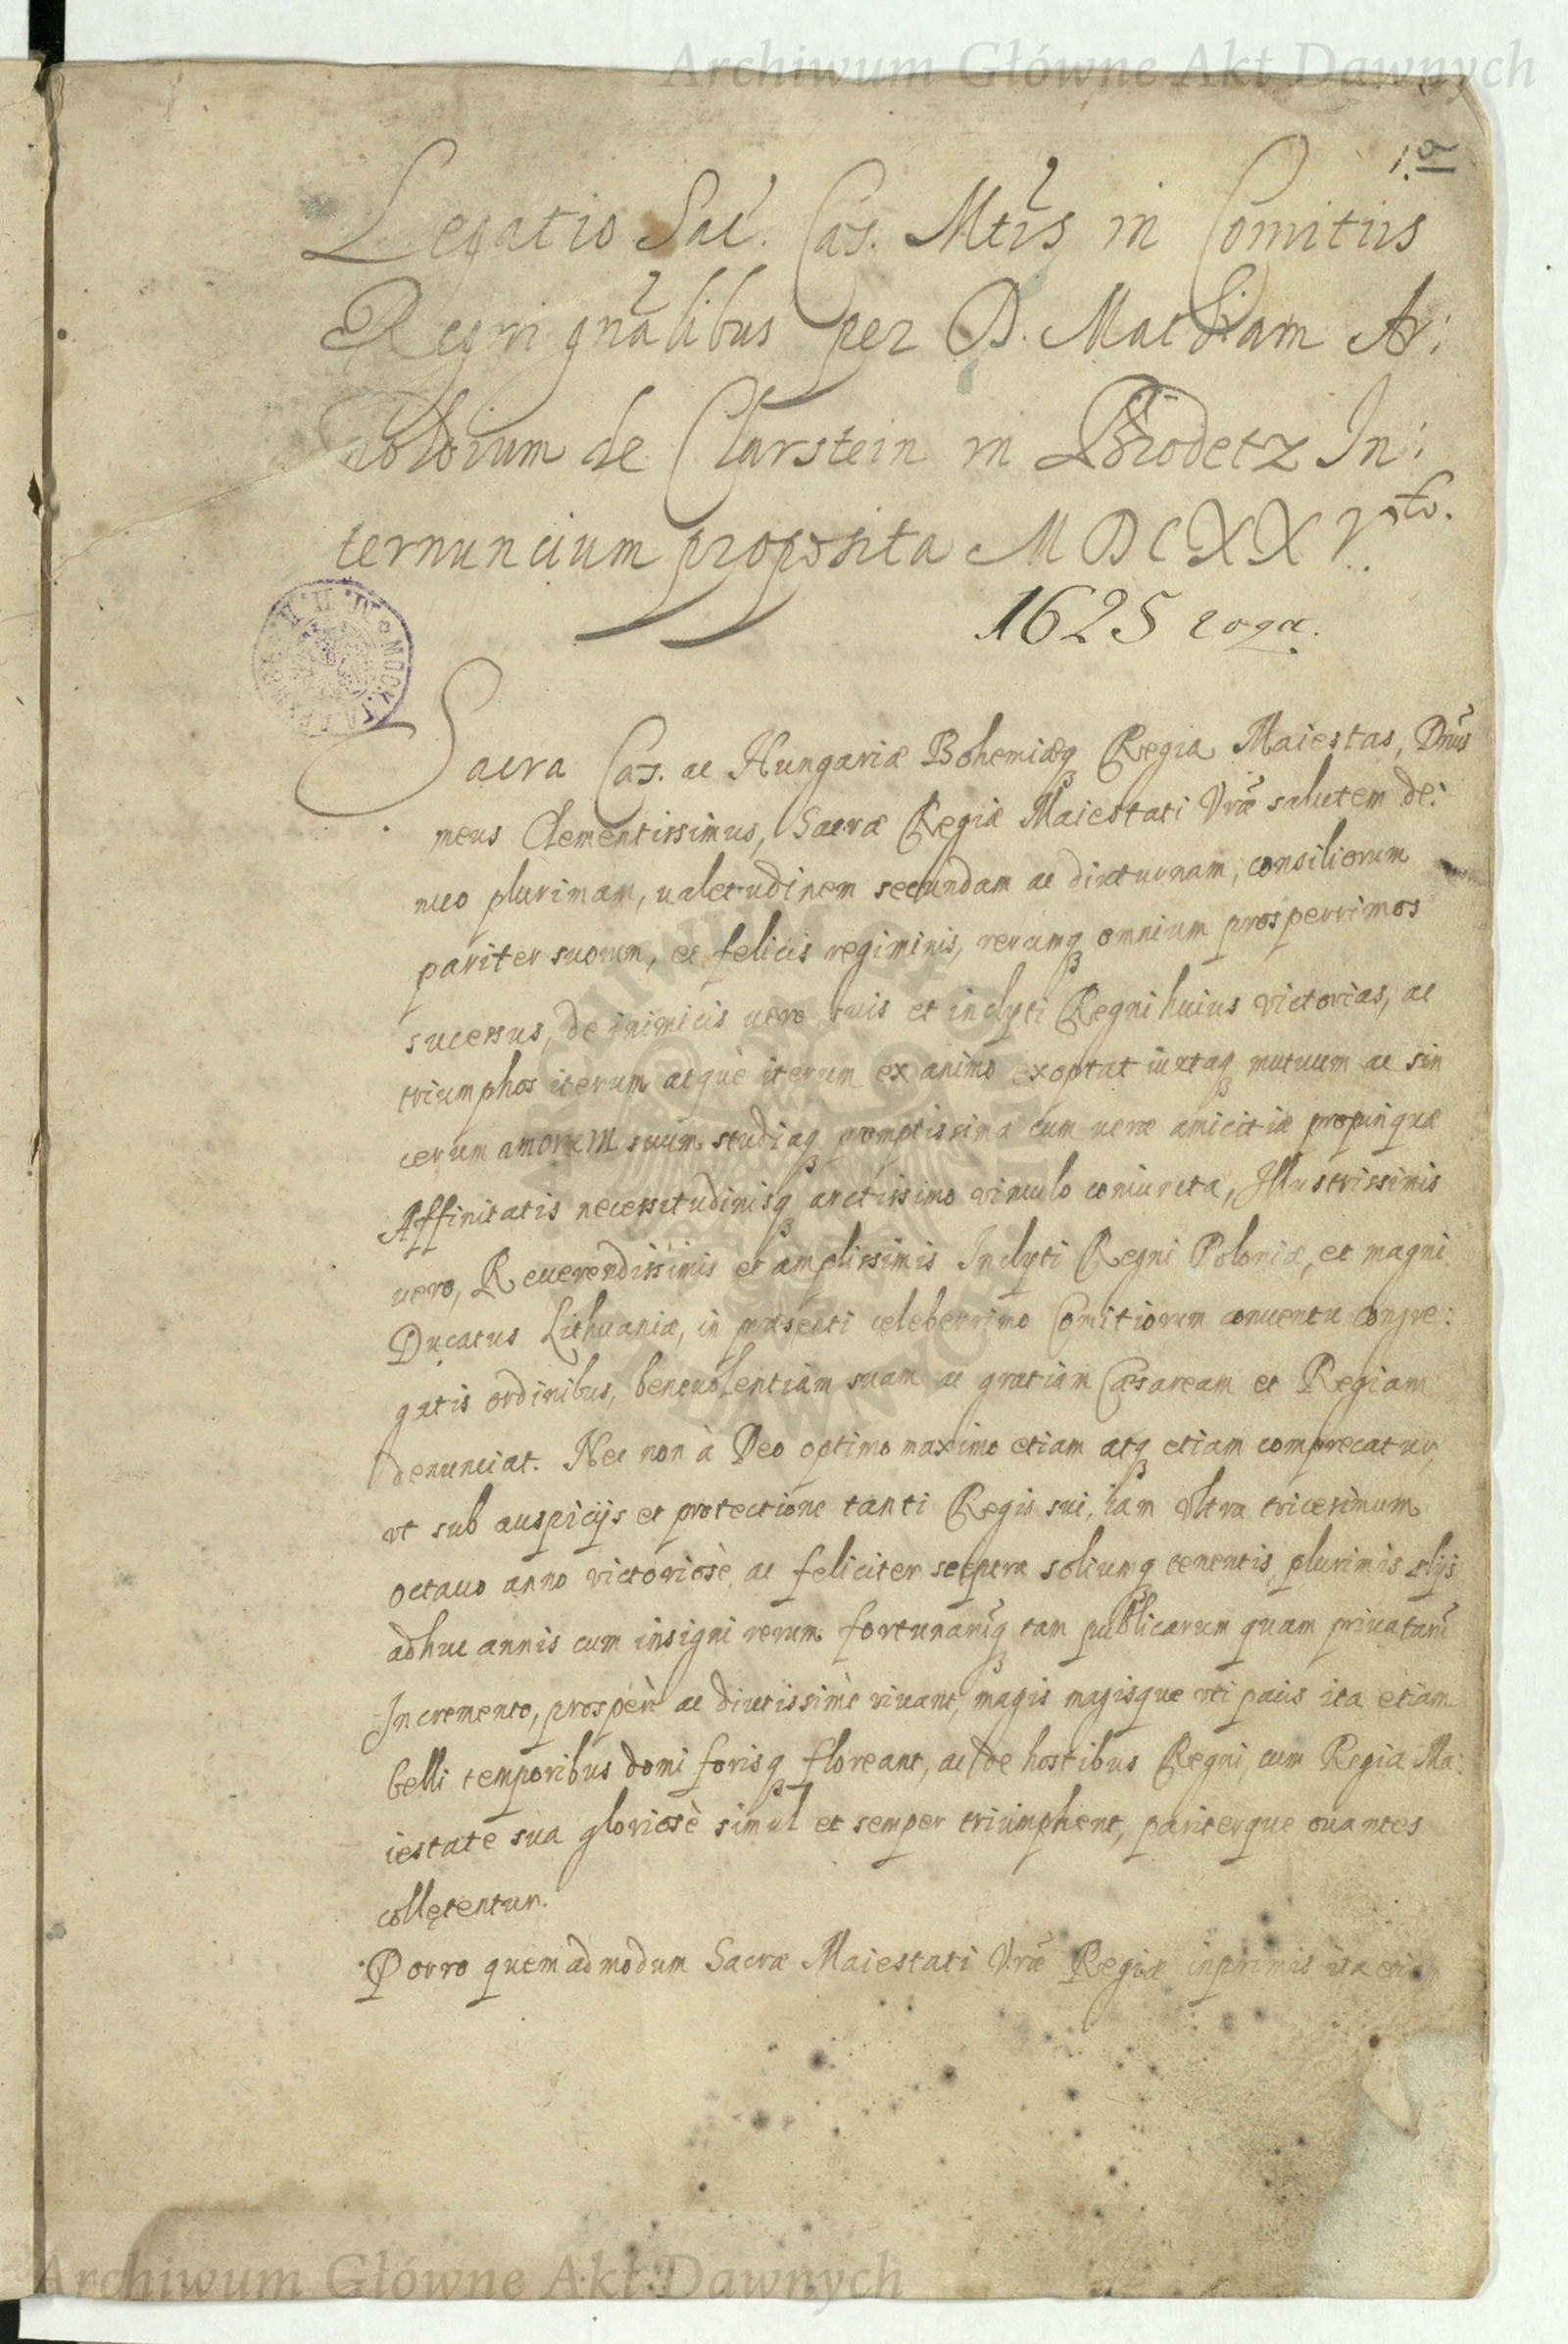 Archiwum Główne Akt Dawnych
1.a
Legatio Sac. Cæs. Mtis in Comitiis
Regni gnãlibus per D. Mathiam Ar:
noldinum de Clarstein in Brodetz In:
ternuncium proposita MDCXXVto.
1625 года.
Sacra Cæs. ac Hungariæ Bohemiæq Regia Maiestas, Dñus
meus Clementissimus, Sacræ Regiæ Maiestati Vræ salutem de:
nuo plurimam, ualetudinem secundam ac diuturnam, consiliorum
pariter suorum, et felicis regiminis, rerumq omnium prosperrimos
sucessus, de inimicis uero suis et inclyti Regni huius victorias, ac
triumphos iterum atque iterum ex animo exoptat iuxtaq mutuum ac sin
cerum amorem suum studiaq promptissima cum ueræ amicitiæ propinquæ
Affinitatis necessitudinisq arctissimo vinculo coniuncta, Illustrissimis
uero, Reuerendissimis et amplissimis Inclyti Regni Poloniæ, et magni
Ducatus Lithuaniæ, in præsenti celeberrimo Comitiorum conuentu congre:
gatis ordinibus, beneuolentiam suam ac gratiam Cæsaream et Regiam
denunciat. Nec non à Deo optimo maximo etiam atq etiam comprecatur,
vt sub auspicijs et protectione tanti Regis sui, iam vltra tricesimum
octauo anno victoriosè ac feliciter sceptra soliumq tenentis, plurimis alijs
adhuc annis cum insigni rerum fortunarũq tam publicarum quam priuatarũ
Incremento, prosperè ac diutissimè viuant, magis magisque vti pacis ita etiam
belli temporibus domi forisq floreant, ac de hostibus Regni, cum Regia Ma:
iestate sua gloriosè simul et semper triumphent, pariterque ouantes
collętentur.
Porro quemadmodum Sacræ Maiestati Vræ Regiæ inprimis ita
Archiwum Główne Akt Dawnych